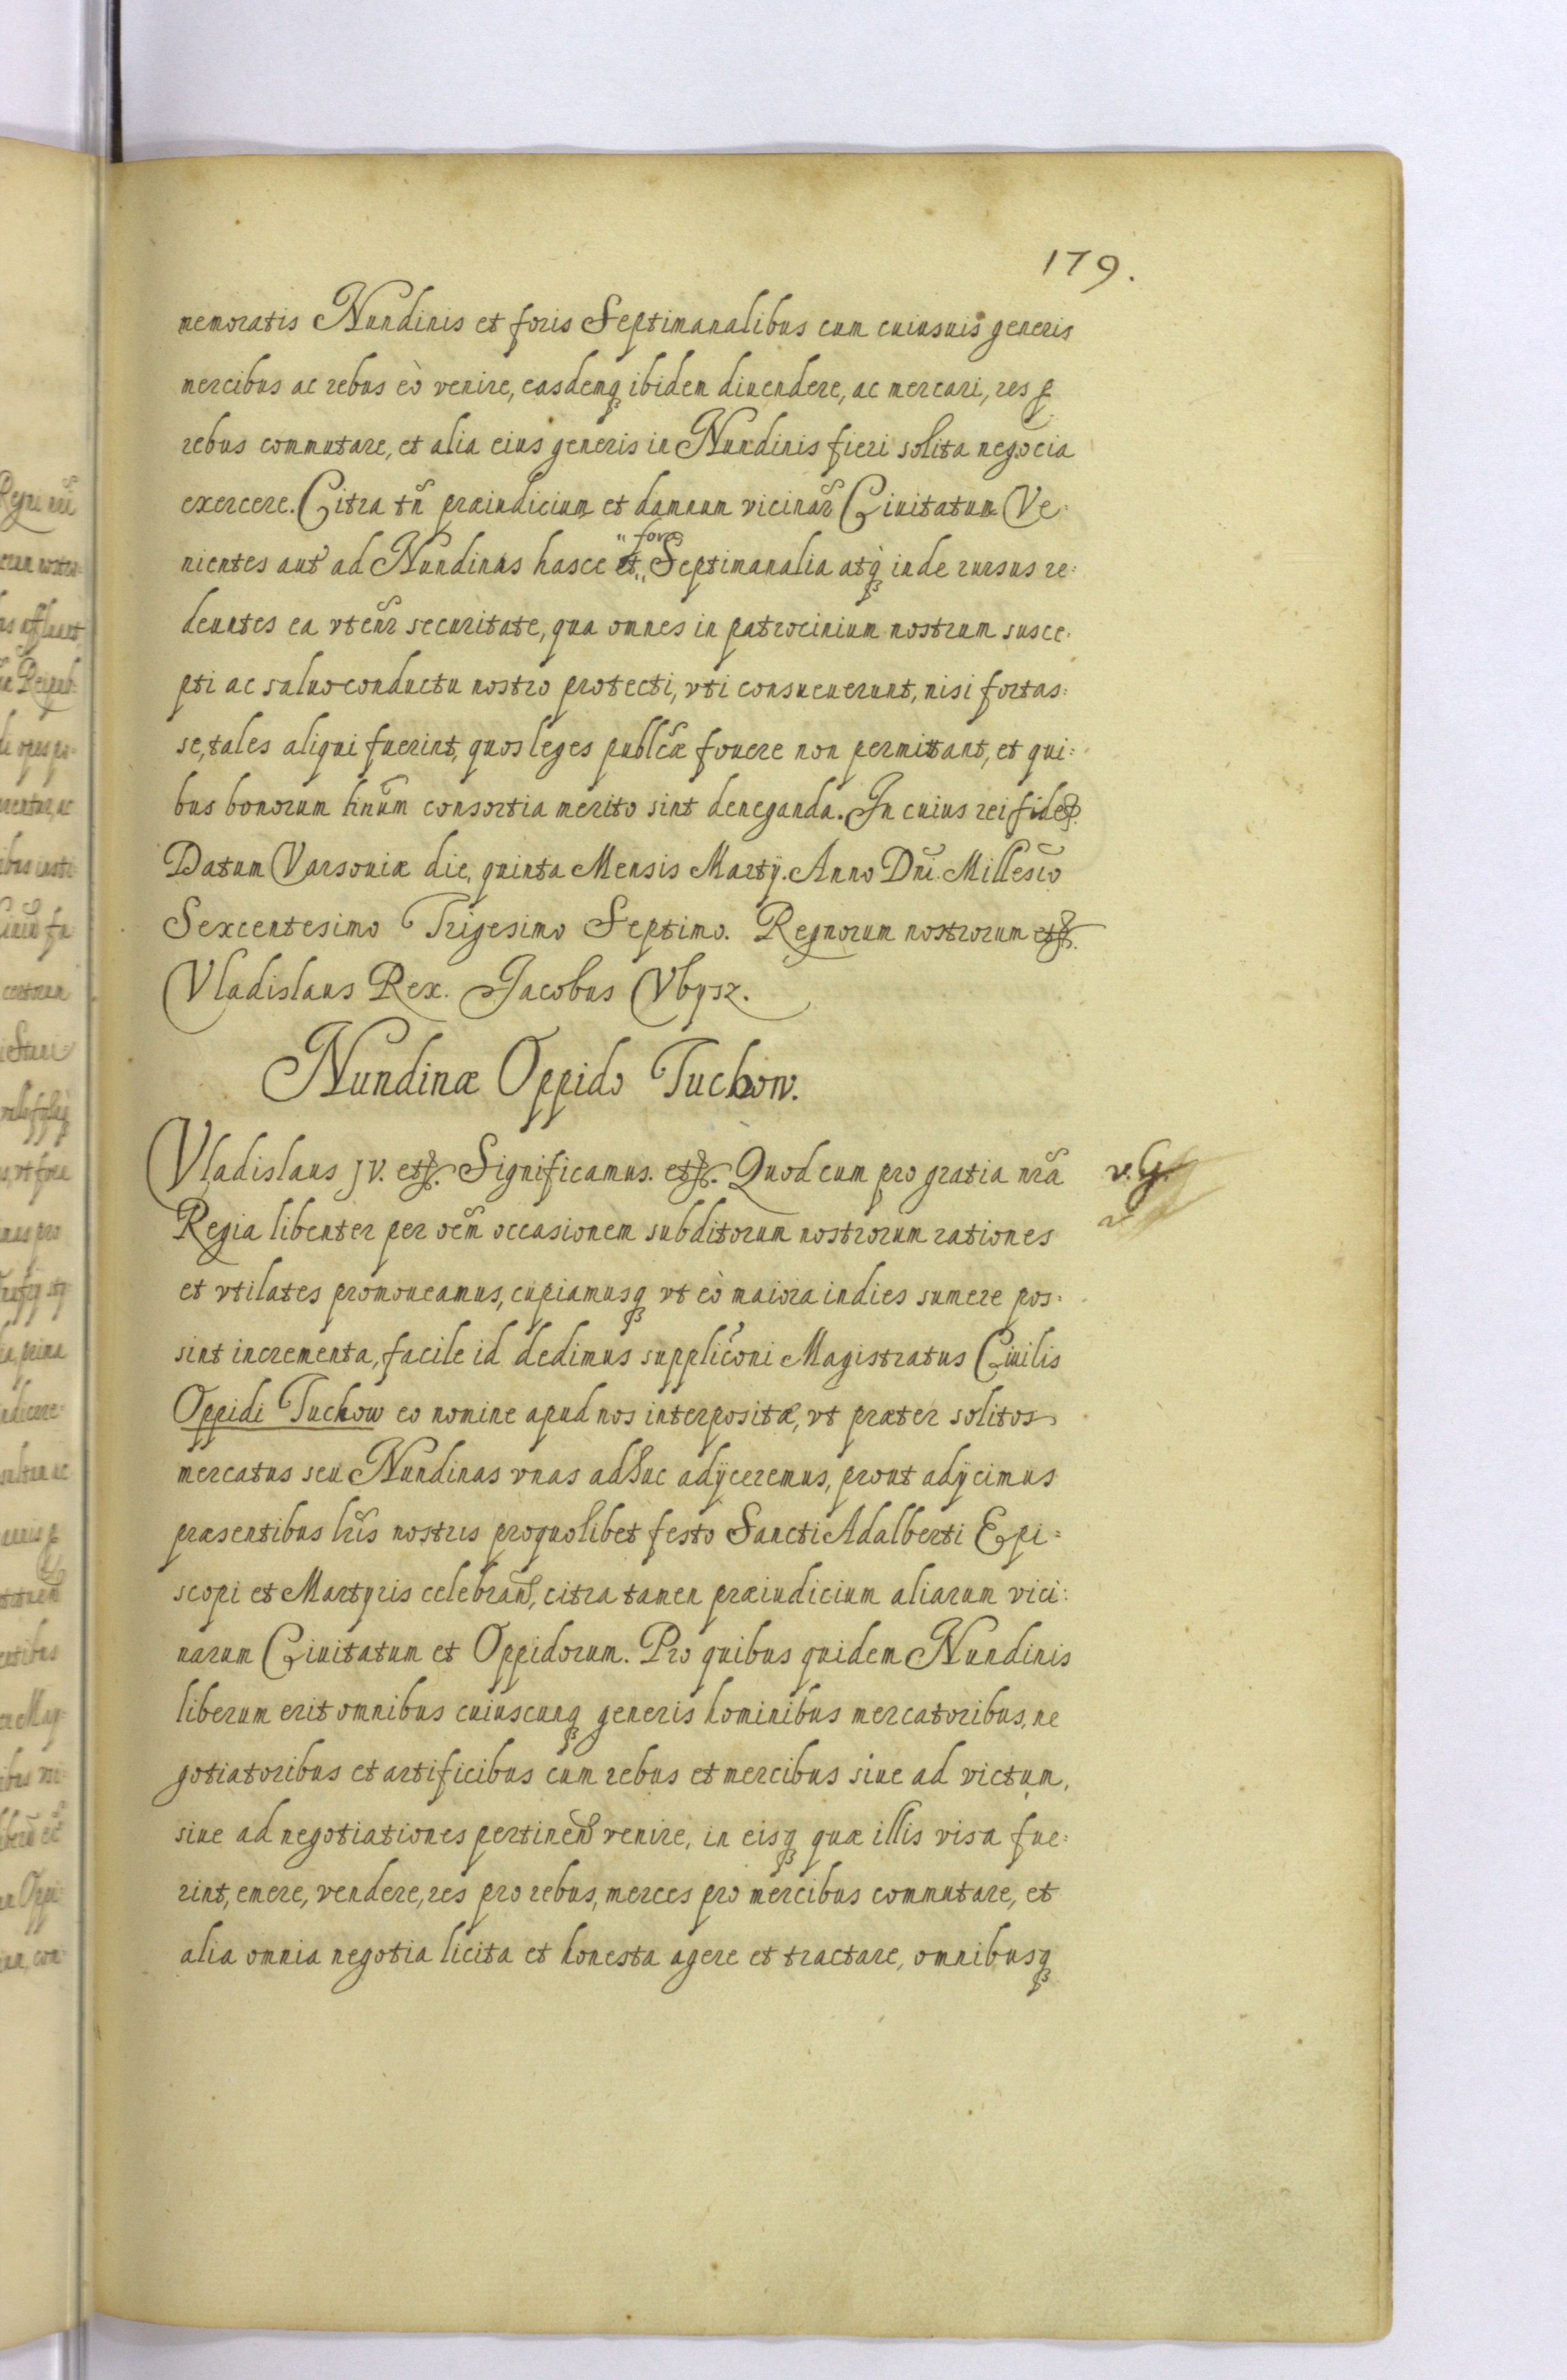 179.
memoratis Nundinis et foris Septimanalibus cum cuiusuis generis
mercibus ac rebus eò venire, easdemq ibidem diuendere, ac mercari, res p
rebus commutare, et alia eius generis in Nundinis fieri solita negocia
exercere. Citra tñ præiudicium et damnum vicinar̃ Ciuitatum Ve:
nientes aut ad Nundinas hasce et fora Septimanalia atq̀ inde rursus re:
deuntes ea vtent̃r securitate, qua omnes in patrocinium nostrum susce:
pti ac saluoconductu nostro protecti, vti consueuerunt, nisi fortas:
se, tales aliqui fuerint, quos leges publc̃æ fouere non permittant, et qui:
bus bonorum hnũm consortia merito sint deneganda. In cuius rei fidē.
Datum Varsouiæ die, quinta Mensis Martÿ. Anno Dni. Millesĩo
Sexcentesimo Trigesimo Septimo. Regnorum nostrorum etc.
Vladislaus Rex. Jacobus Vbysz.
Nundinæ Oppido Tuchow.
Vladislaus JV. etc. Significamus. etc. Quod cum pro gratia nr̃a
v. G.
Regia libenter per oem̃ occasionem subditorum nostrorum rationes
et vtilates promoueamus, cupiamusq vt eò maiora indies sumere pos:
sint incrementa, facile id dedimus supplicõni Magistratus Ciuilis
Oppidi Tuchow eo nomine apud nos interpositæ, vt præter solitos
mercatus seu Nundinas vnas adhuc adÿceremus, prout adÿcimus
præsentibus lr̃is nostris pro quolibet festo Sancti Adalberti Epi:
scopi et Martyris celebran̄, citra tamen præiudicium aliarum vici:
narum Ciuitatum et Oppidorum. Pro quibus quidem Nundinis
liberum erit omnibus cuiuscunq generis hominibus mercatoribus, ne
gotiatoribus et artificibus cum rebus et mercibus siue ad victum,
siue ad negotiationes pertinen̄ venire, in eisq quæ illis visa fue:
rint, emere, vendere, res pro rebus, merces pro mercibus commutare, et
alia omnia negotia licita et honesta agere et tractare, omnibusq